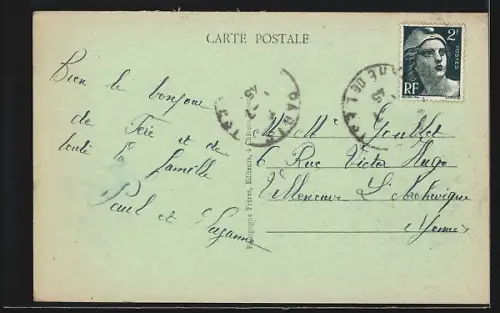 CARTE POSTALE
2F
POSTES
RF
PARIS
45
Bien le bonjour
de et de
toute la famille
Paul et Suzanne
Bourgogne Frères, Editeurs, à
M. et Mme Goublet
6 Rue Victor Hugo
Villeneuve L'Archevêque
Yonne